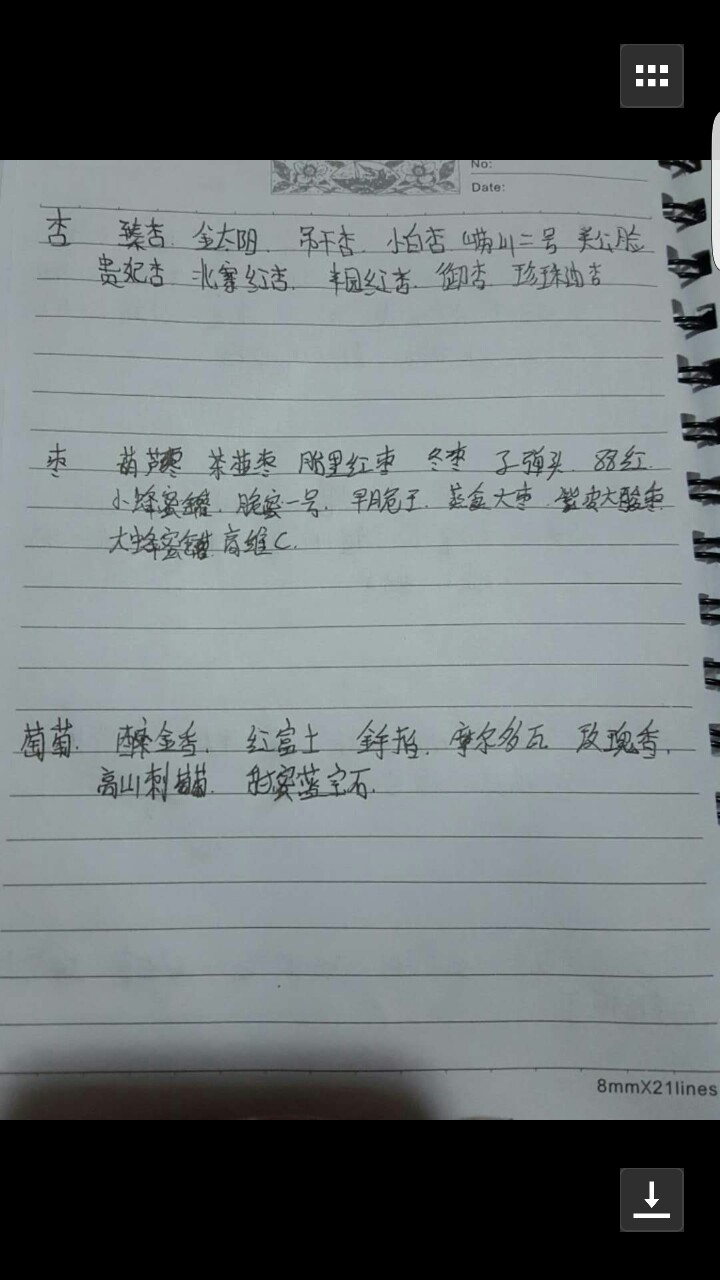 No:
Date:
杏 臻杏. 金太阳. 吊干杏. 小白杏 崂山二号 关公脸
贵妃杏. 北寨红杏. 丰园红杏. 御杏. 珍珠油杏
枣 葫芦枣 茶壶枣 胎里红枣 冬枣 子弹头. 88红.
小蜂蜜罐. 脆蜜一号. 早脆王. 大枣. 紫皮大酸枣.
大蜂蜜罐 高维C.
葡萄. 醉金香. 红富士 金手指. 摩尔多瓦 玫瑰香.
高山刺葡萄. 蓝宝石.
8mmX21lines